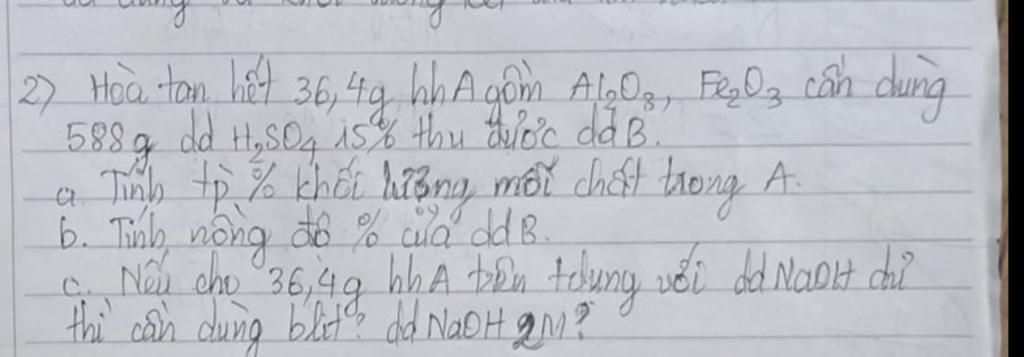 2) Hoà tan hết 36,4g hh A gồm Al₂O₃, Fe₂O₃ cần dùng
588g dd H₂SO₄ 15% thu được dd B.
a. Tính tp % khối lượng mỗi chất trong A.
b. Tính nồng độ % của dd B.
c. Nếu cho 36,4g hh A trên tdụng với dd NaOH dư
thì cần dùng blit? dd NaOH 2M?